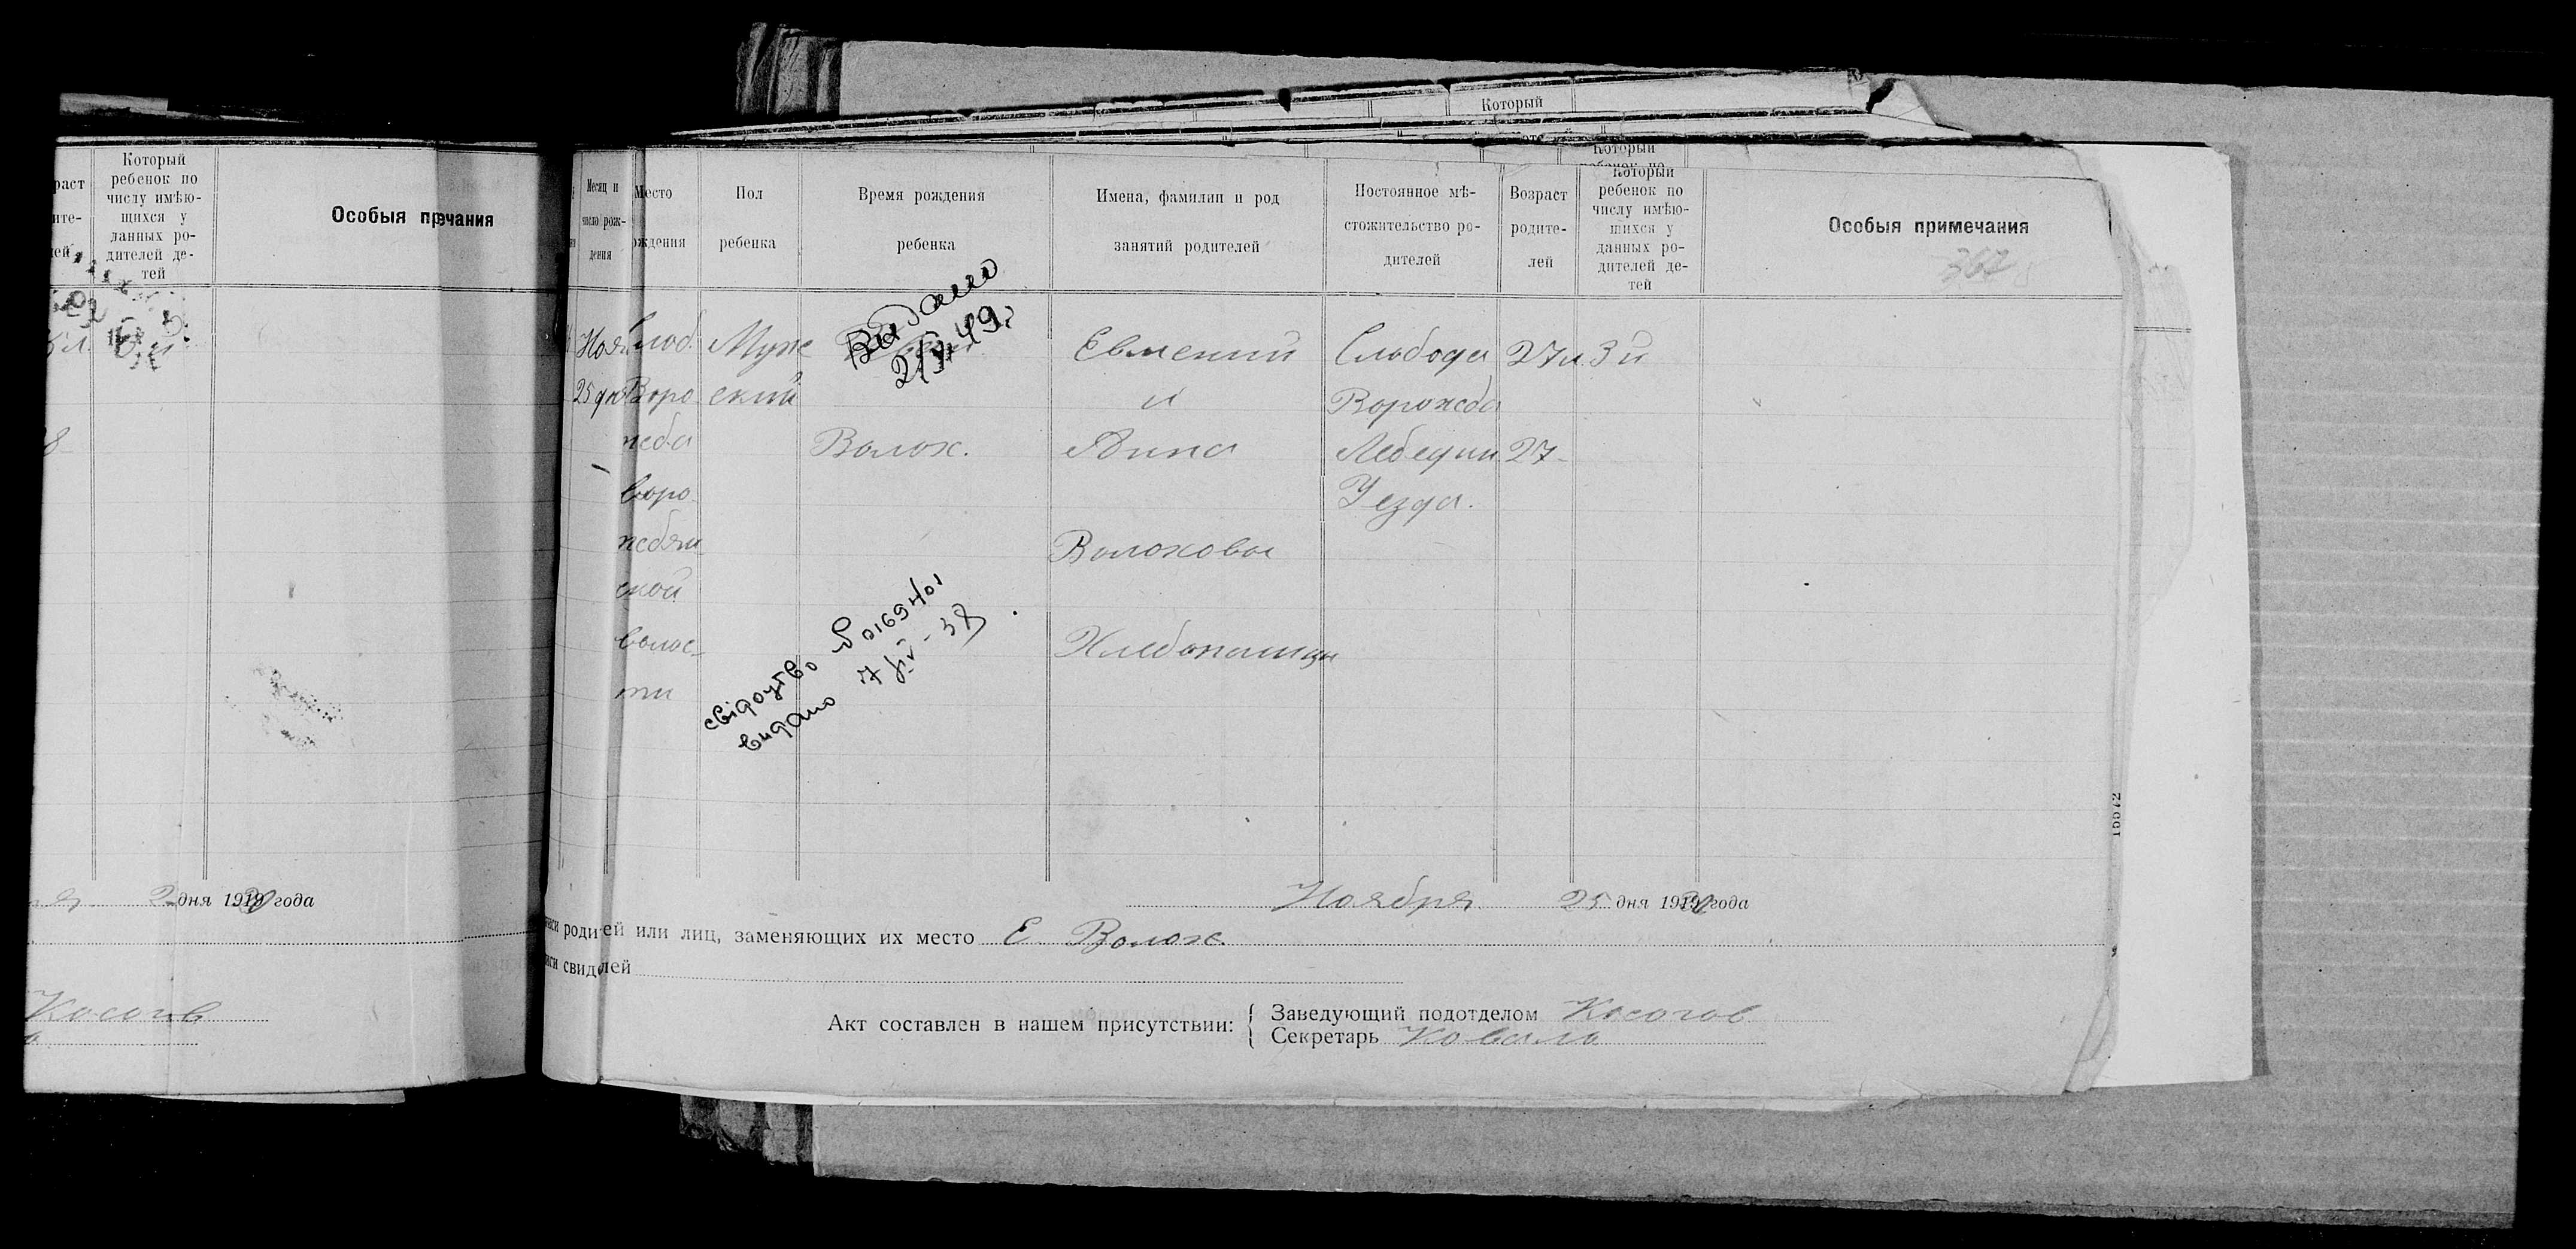 Который
Который
раст
Который
ребенок по
числу имѣю-
щихся у
данных ро-
дителей де-
тей
Особыя пречания
Месяц и
число рож-
дения
Место
рождения
Пол
ребенка
Время рождения
ребенка
Имена, фамилии и род
занятий родителей
Постоянное мѣ-
стожительство ро-
дителей
Возраст
родите-
лей
Который
ребенок по
числу имѣю-
щихся у
данных ро-
дителей де-
тей
Особыя примечания
362
Видано
49 г
Ноя
25 дня
Слоб.
Воро
жба
Воро
жбян
ской
волос-
ти
Муж
ский
Волох.
Евмений
и
Анна
Волоховы
Хлебопашцы
Слобода
Ворожба
Лебедин
Уезда.
27 л.
27
3 й
свідоцтво
видано 7/IV-38
2 дня 1919 года
Ноября 25 дня 1919 года
родителей или лиц, заменяющих их место Е. Волох
свидетелей
Косогов
Акт составлен в нашем присутствии:
Заведующий подотделом Косогов
Секретарь Коваль